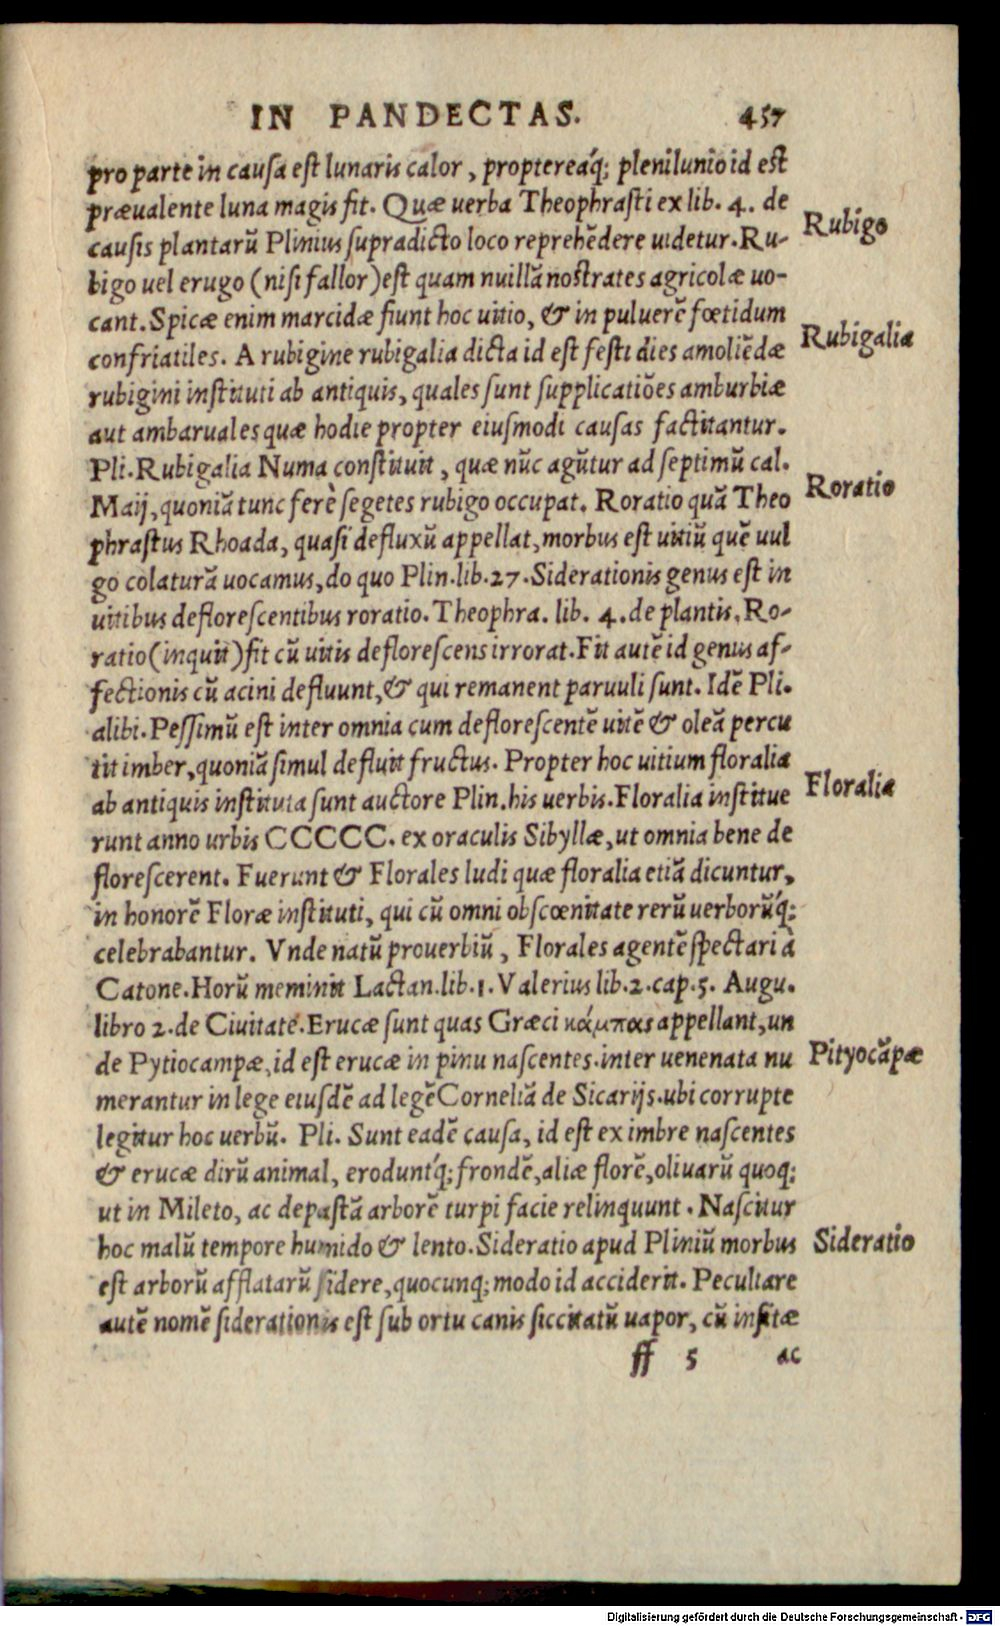 IN PANDECTAS. 457
pro parte in causa est lunaris calor, proptereáq; plenilunio id est
præualente luna magis fit. Quæ uerba Theophrasti ex lib. 4. de
Rubigo
causis plantarũ Plinius supradicto loco reprehẽdere uidetur. Ru-
bigo uel erugo (nisi fallor) est quam nuillã nostrates agricolæ uo-
cant. Spicæ enim marcidæ fiunt hoc uitio, & in puluerẽ fœtidum
Rubigalia
confriatiles. A rubigine rubigalia dicta id est festi dies amoliẽdæ
rubigini instituti ab antiquis, quales sunt supplicatiões amburbiæ
aut ambaruales quæ hodie propter eiusmodi causas factitantur.
Pli. Rubigalia Numa constituit, quæ nũc agũtur ad septimũ cal.
Roratio
Maij, quoniã tunc ferè segetes rubigo occupat. Roratio quã Theo
phrastus Rhoada, quasi defluxũ appellat, morbus est uitiũ quẽ uul
go colaturã uocamus, do quo Plin. lib. 27. Siderationis genus est in
uitibus deflorescentibus roratio. Theophra. lib. 4. de plantis, Ro-
ratio (inquit) fit cũ uitis deflorescens irrorat. Fit autẽ id genus af-
fectionis cũ acini defluunt, & qui remanent paruuli sunt. Idẽ Pli.
alibi. Pessimũ est inter omnia cum deflorescentẽ uitẽ & oleã percu
tit imber, quoniã simul defluit fructus. Propter hoc uitium floralia
Floralia
ab antiquis instituta sunt auctore Plin. his uerbis. Floralia institue
runt anno urbis CCCCC. ex oraculis Sibyllæ, ut omnia bene de
florescerent. Fuerunt & Florales ludi quæ floralia etiã dicuntur,
in honorẽ Floræ instituti, qui cũ omni obscœnitate rerũ uerborũq́;
celebrabantur. Vnde natũ prouerbiũ, Florales agentẽ spectari à
Catone. Horũ meminit Lactan. lib. 1. Valerius lib. 2. cap. 5. Augu.
libro 2. de Ciuitate. Erucæ sunt quas Græci κάμπας appellant, un
Pityocãpæ
de Pytiocampæ, id est erucæ in pinu nascentes. inter uenenata nu
merantur in lege eiusdẽ ad legẽ Corneliã de Sicarijs. ubi corrupte
legitur hoc uerbũ. Pli. Sunt eadẽ causa, id est ex imbre nascentes
& erucæ dirũ animal, eroduntq́; frondẽ, aliæ florẽ, oliuarũ quoq;
ut in Mileto, ac depastã arborẽ turpi facie relinquunt. Nascitur
Sideratio
hoc malũ tempore humido & lento. Sideratio apud Pliniũ morbus
est arborũ afflatarũ sidere, quocunq; modo id acciderit. Peculiare
autẽ nomẽ siderationis est sub ortu canis siccitatũ uapor, cũ insitæ
ff 5 ac
Digitalisierung gefördert durch die Deutsche Forschungsgemeinschaft - DFG